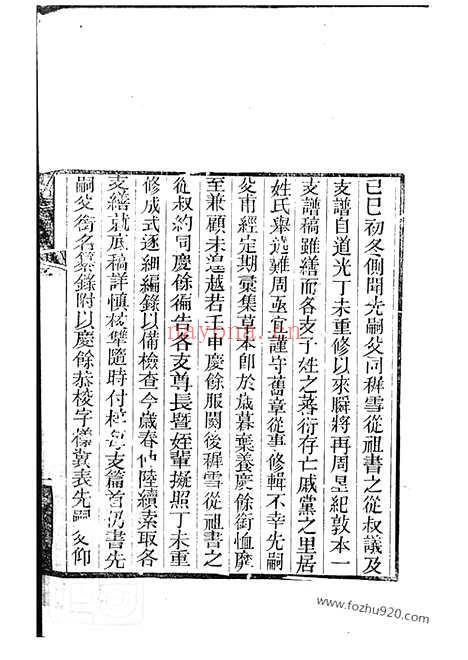 己巳初冬側聞先嗣父同穉雪從祖書之從叔議及
支譜自道光丁未重修以來瞬將再周星紀敦本一
支譜稿雖繕而各支子姓之蕃衍存亡戚黨之里居
姓氏舉遺難周亟宜謹守舊章從事修輯不幸先嗣
父甫經定期彙集草本即於歲暮棄養慶餘銜恤靡
至兼顧未遑越若壬申慶餘服闋後穉雪從祖書之
從叔約同慶餘徧告各支尊長暨姪輩擬照丁未重
修成式逐細編錄以備檢查今歲春仲陸續索取各
支繕就底稿詳慎校讐隨時付梓 支篇首仍書先
嗣父銜名纂錄附以慶餘恭校字樣冀表先嗣父仰
nayona.cn
www.fozhu920.com